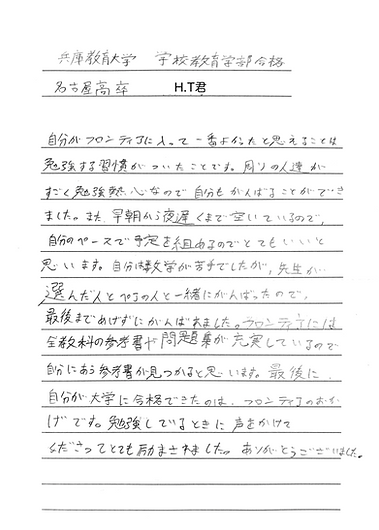 兵庫教育大学 学校教育学部合格
名古屋高卒 H.T君
自分がフロンティアに入って一番よかったと思えることは
勉強する習慣がついたことです。周りの人達が
すごく勉強熱心なので自分もがんばることができ
ました。また、早朝から夜遅くまで空いているので、
自分のペースで予定を組めるのでとてもいいと
思います。自分は数学が苦手でしたが、先生が
選んだ人と ペアの人と一緒にがんばったので、
最後まであげずにがんばれました。フロンティアには
全教科の参考書や問題集が充実しているので
自分にあう参考書が見つかると思います。最後に、
自分が大学に合格できたのは、フロンティアのおか
げです。勉強しているときに声をかけて
くださってとても励まされました。ありがとうございました。